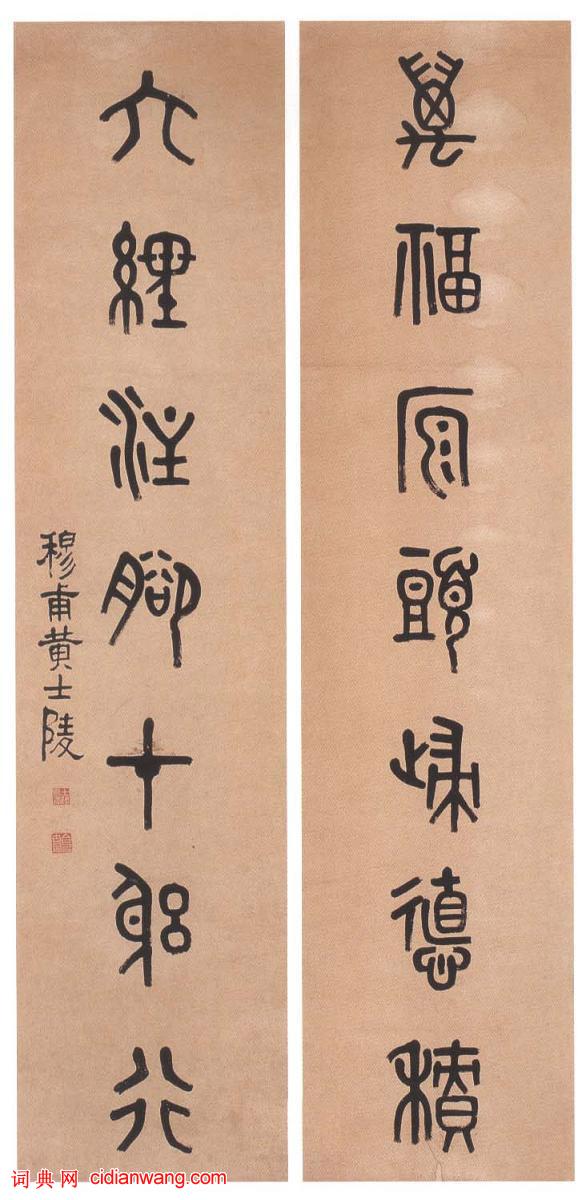 萬福原頭歸德積
六經注腳在躬行
穆甫黄士陵
词典网 cidianwang.com